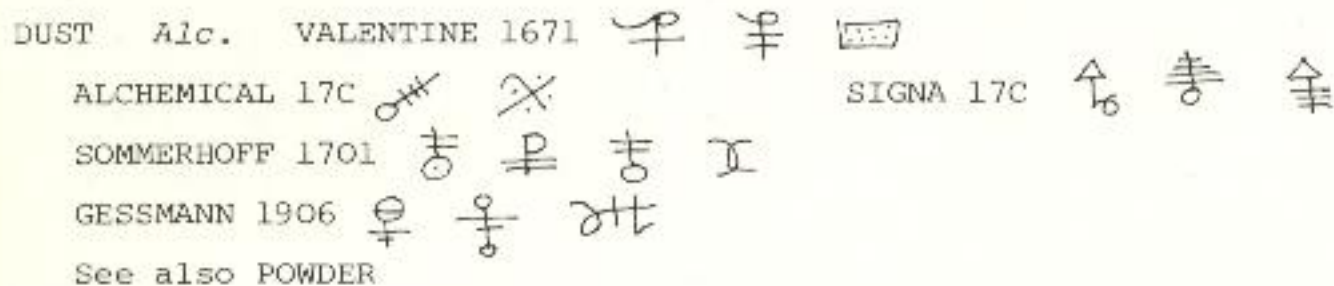 DUST Alc. VALENTINE 1671
ALCHEMICAL 17C SIGNA 17C
SOMMERHOFF 1701
GESSMANN 1906
See also POWDER